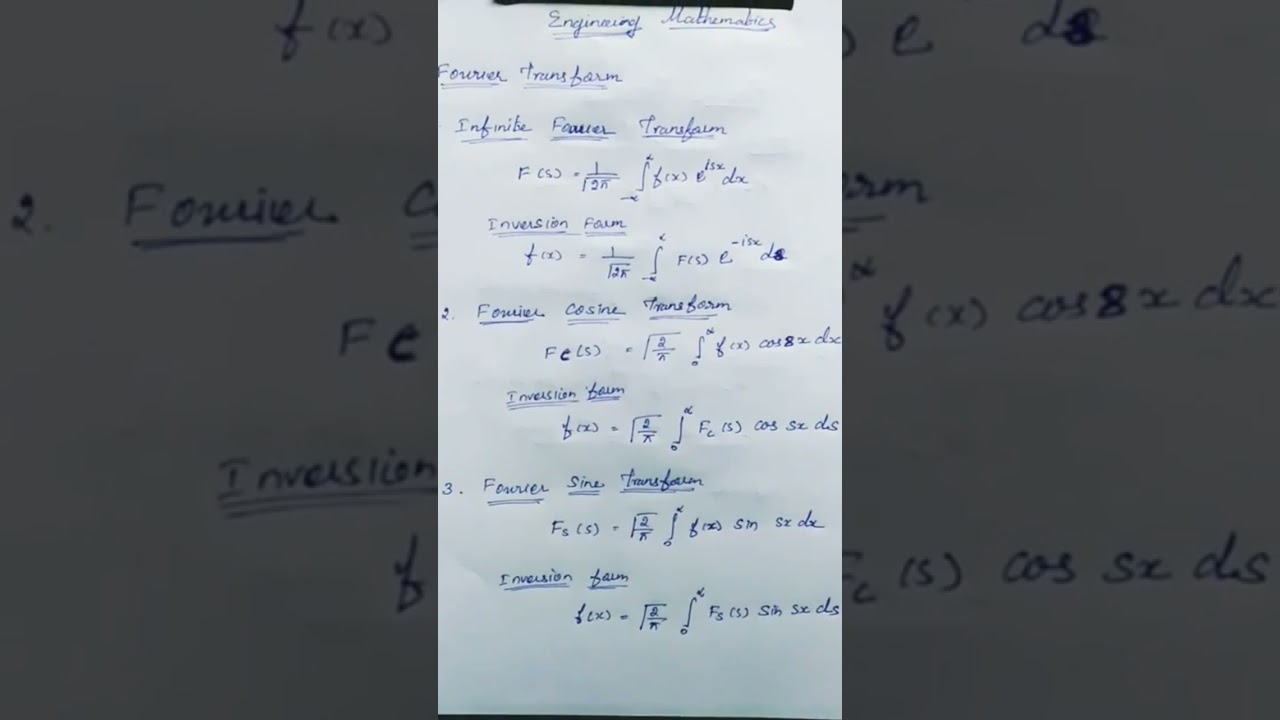 Engineering Mathematics
Fourier Transform
Infinite Fourier Transform
F(s) = 1/√2π ∫_{-∞}^{∞} f(x) e^{isx} dx
Inversion Form
f(x) = 1/√2π ∫_{-∞}^{∞} F(s) e^{-isx} ds
2. Fourier Cosine Transform
Fc(s) = √2/π ∫_0^∞ f(x) cos sx dx
Inversion form
f(x) = √2/π ∫_0^∞ Fc(s) cos sx ds
3. Fourier Sine Transform
Fs(s) = √2/π ∫_0^∞ f(x) sin sx dx
Inversion form
f(x) = √2/π ∫_0^∞ Fs(s) sin sx ds